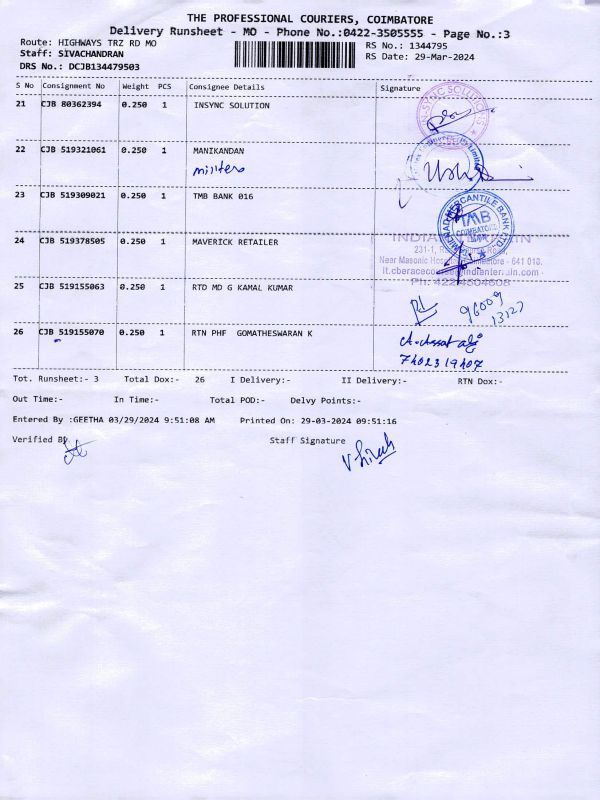 THE PROFESSIONAL COURIERS, COIMBATORE
Delivery Runsheet - MO - Phone No.:0422-3505555 - Page No.:3
Route: HIGHWAYS TRZ RD MO
RS No.: 1344795
Staff: SIVACHANDRAN
RS Date: 29-Mar-2024
DRS No.: DCJB134479503
S No Consignment No Weight PCS Consignee Details Signature
21 CJB 80362394 0.250 1 INSYNC SOLUTION
IN-SYNC SOLUTIONS
22 CJB 519321061 0.250 1 MANIKANDAN
23 CJB 519309021 0.250 1 TMB BANK 016
MERCANTILE BANK LTD
TMB
COIMBATORE
24 CJB 519378505 0.250 1 MAVERICK RETAILER
Near Masonic - 641 018.
25 CJB 519155063 0.250 1 RTD MD G KAMAL KUMAR
96009
13127
26 CJB 519155070 0.250 1 RTN PHF GOMATHESWARAN K
7402319407
Tot. Runsheet:- 3 Total Dox:- 26 I Delivery:- II Delivery:- RTN Dox:-
Out Time:- In Time:- Total POD:- Delvy Points:-
Entered By :GEETHA 03/29/2024 9:51:08 AM Printed On: 29-03-2024 09:51:16
Verified By Staff Signature